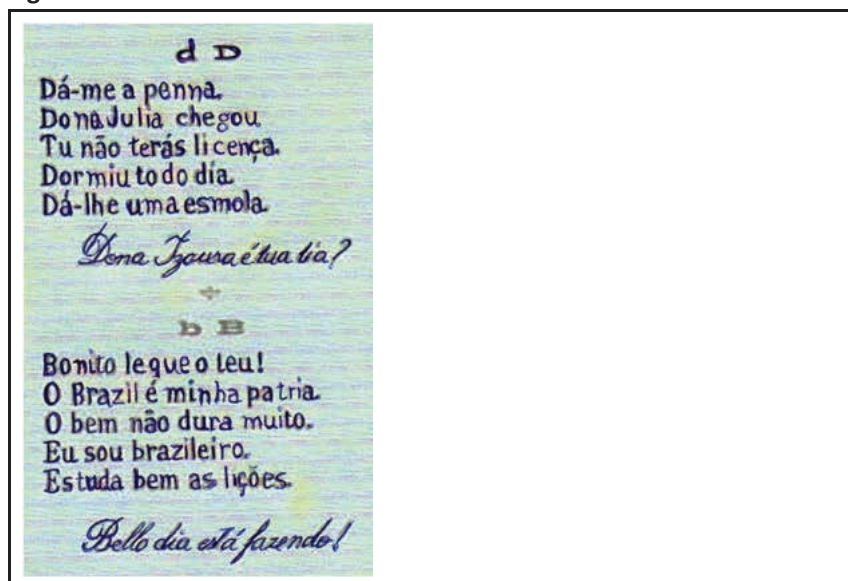 d D
Dá-me a penna.
Dona Julia chegou
Tu não terás licença.
Dormiu todo dia.
Dá-lhe uma esmola.
Dona Izaura é tua tia?
b B
Bonito leque o teu!
O Brazil é minha patria.
O bem não dura muito.
Eu sou brazileiro.
Estuda bem as lições.
Bello dia está fazendo!